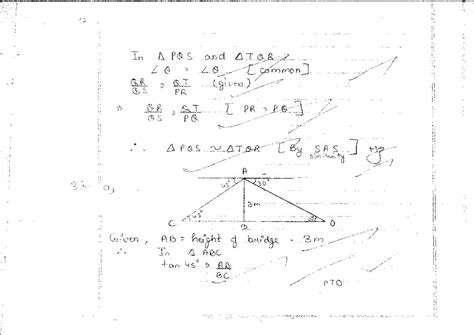 In Δ PQS and Δ TQR
∠Q = ∠Q [common]
QR/QS = QT/PR (given)
QR/QS = QT/PQ [PR = PQ]
∴ Δ PQS ~ ΔTQR [By SAS similarity]
a)
A
45° 30°
3m
C 45° B D
Given, AB = height of bridge = 3m
∴ In Δ ABC
tan 45° = AB/BC
PTO